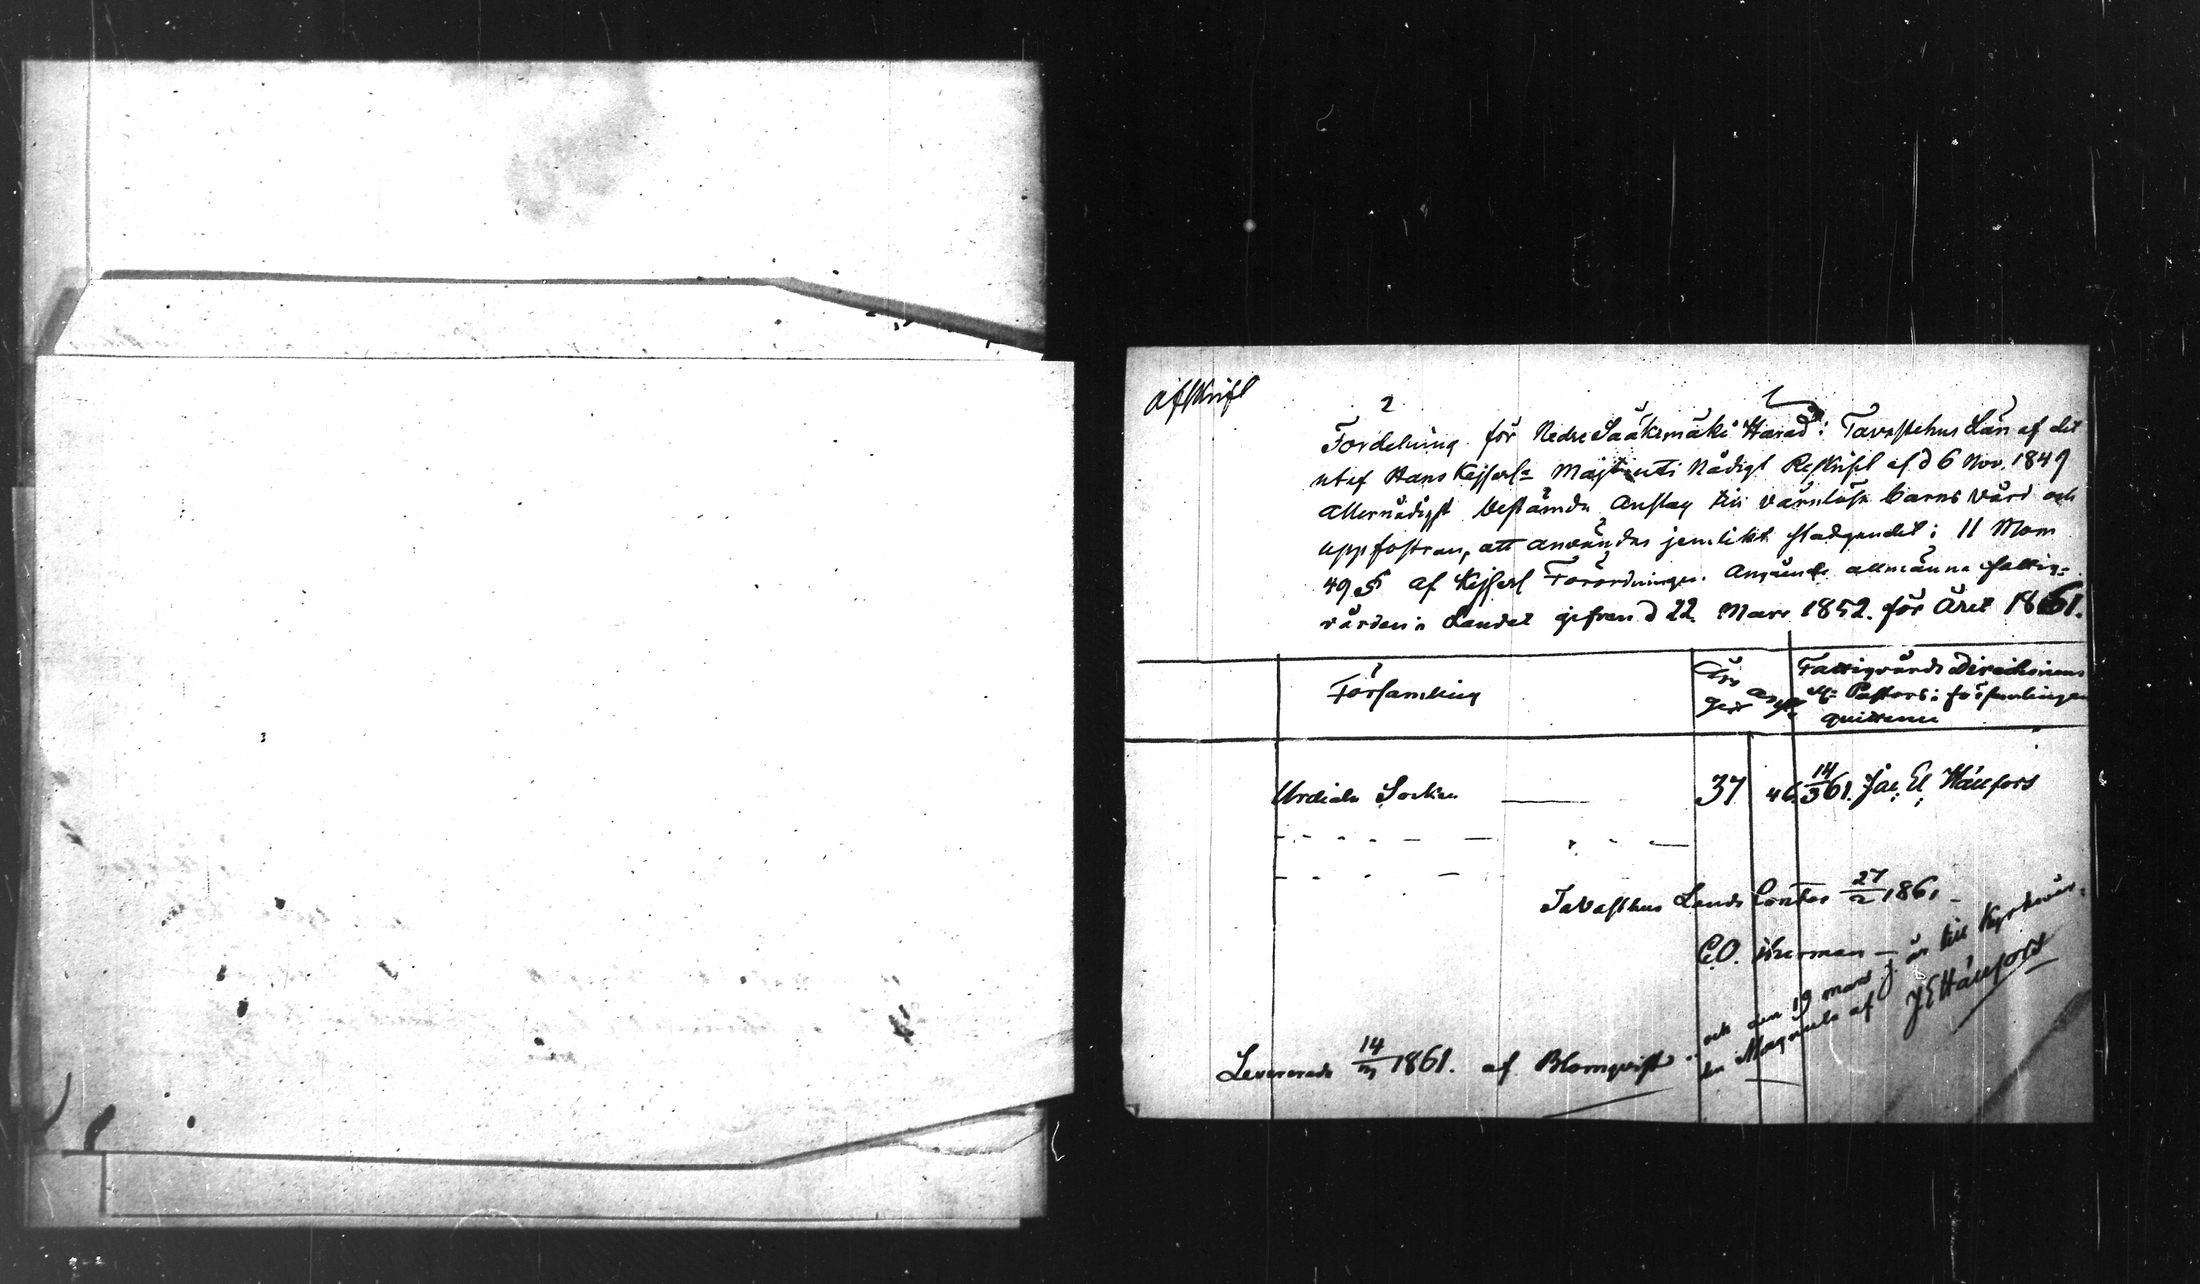 afskrift
2
Fördelning för Nedre Sääksmäki Härad i Tavastehus Län af det
utaf Hans Kejserl= Majestäts Nådigt Reskript af d 6 Nov. 1849
Allernådigst bestämda Anslag till värnlösa barns vård och
uppfostran, att användas jemlikt stadgandet i 11 Mom
49 § af Kejserl Förordningen Angående allmänna fattig=
vården i Landet gifven d 22 Mars 1852. för Året 1861.
Församling
Fattigvårds Direktionens
Pastors i församlingen
quittence
Urdiala Socken 37 46 14/3 61. Jac. El. Hällfors
Tavasthus Lands Contor 27/2 1861
C.O. Åkerman
Levererade 14/3 1861. af Blomqvist
och den 19 mars är till Kyrkovär-
den af J E Hällfors